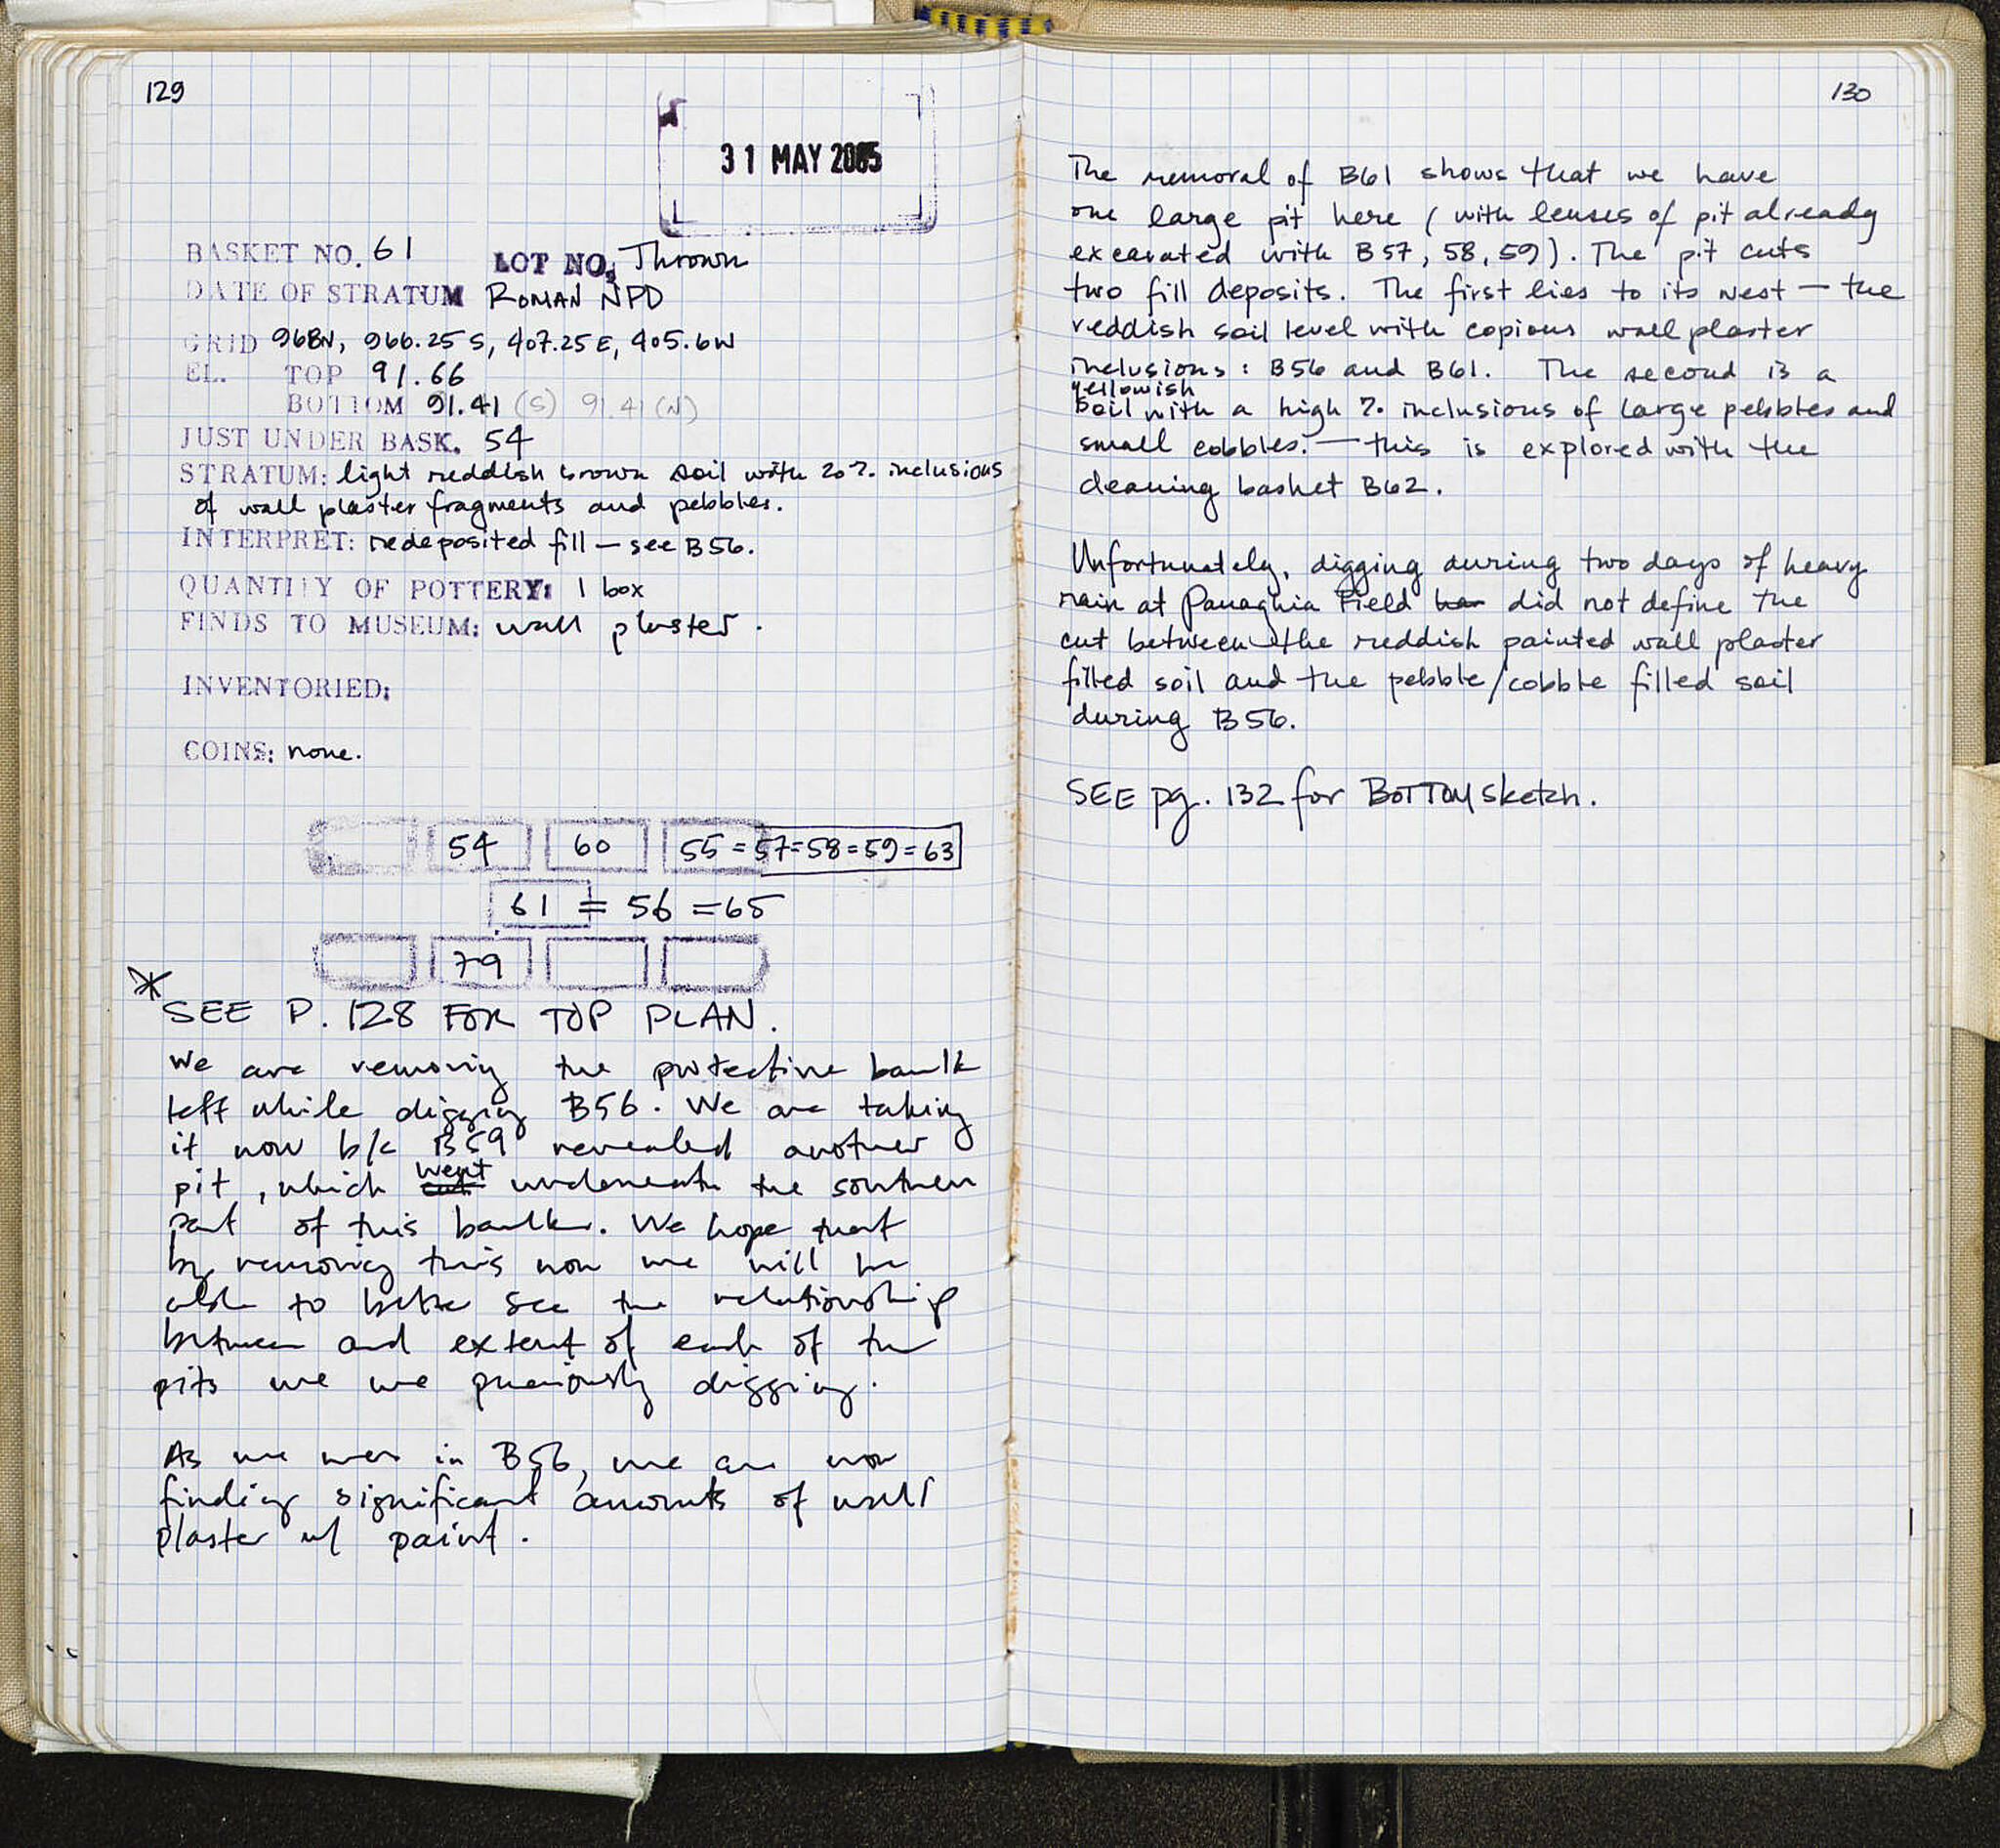 129
31 MAY 2005
BASKET NO. 61 LOT NO. Thrown
DATE OF STRATUM ROMAN NPD
GRID 968N, 966.25 S, 407.25 E, 405.6W
EL. TOP 91.66
BOTTOM 91.41 (S) 91.41 (N)
JUST UNDER BASK. 54
STRATUM: light reddish brown soil with 20% inclusions
of wall plaster fragments and pebbles.
INTERPRET: redeposited fill — see B56.
QUANTITY OF POTTERY: 1 box
FINDS TO MUSEUM: wall plaster.
INVENTORIED:
COINS: none.
54 60 55 = 57=58=59=63
61 = 56 = 65
79
* SEE P. 128 FOR TOP PLAN.
We are removing the protective baulk
left while digging B56. We are taking
it now b/c B59 revealed another
pit, which went underneath the southern
part of this baulk. We hope that
by removing this now we will be
able to better see the relationship
between and extent of each of the
pits we were previously digging.
As we were in B56, we are now
finding significant amounts of wall
plaster w/ paint.
130
The removal of B61 shows that we have
one large pit here (with lenses of pit already
excavated with B57, 58, 59). The pit cuts
two fill deposits. The first lies to its west — the
reddish soil level with copious wall plaster
inclusions: B56 and B61. The second is a
yellowish
soil with a high % inclusions of large pebbles and
small cobbles. — this is explored with the
cleaning basket B62.
Unfortunately, digging during two days of heavy
rain at Panaghia Field did not define the
cut between the reddish painted wall plaster
filled soil and the pebble/cobble filled soil
during B56.
SEE pg. 132 for BOTTOM sketch.